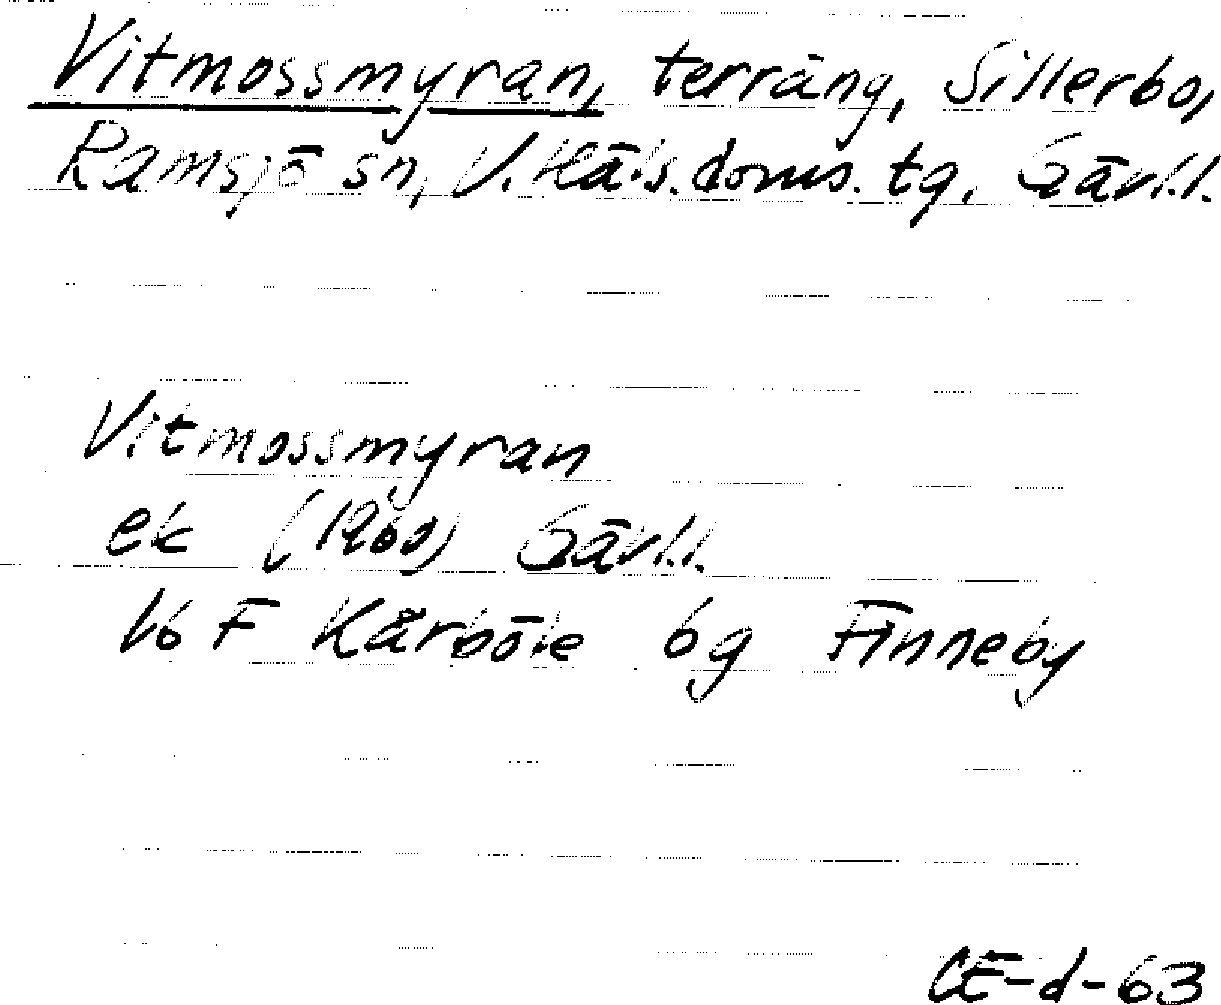 Vitmossmyran, terräng, Sillerbo,
Ramsjö sn, V. Häls. doms. tg. Gävl.l.
Vitmossmyran
ek (1960) Gävl.l.
16 F Kårböle bg Finneby
CE-d-63